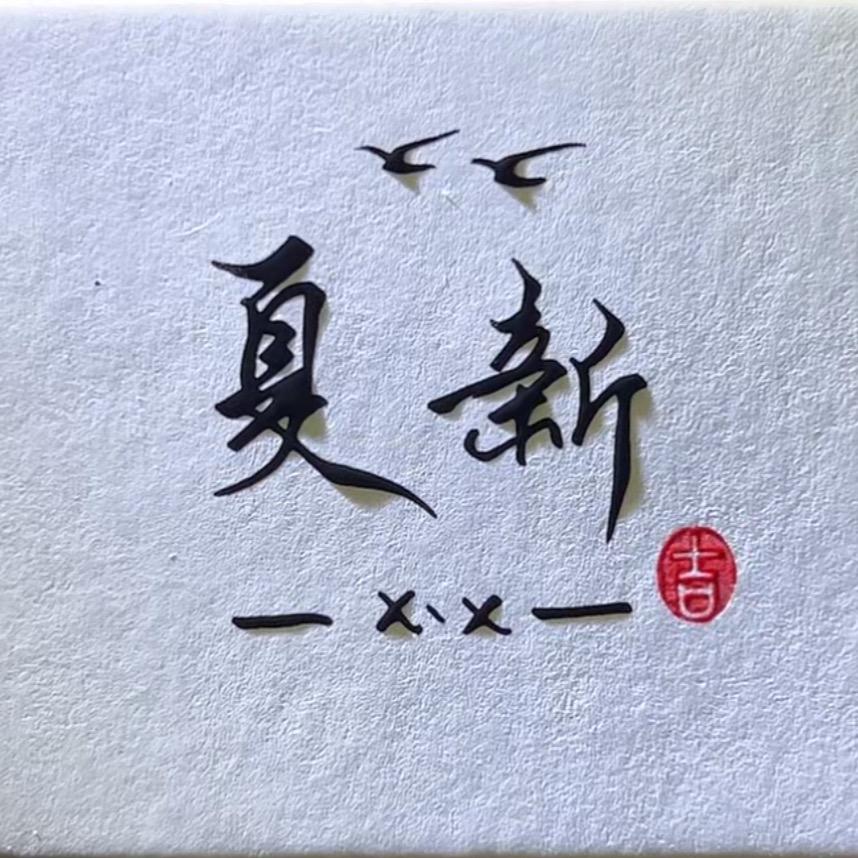 夏新
吉